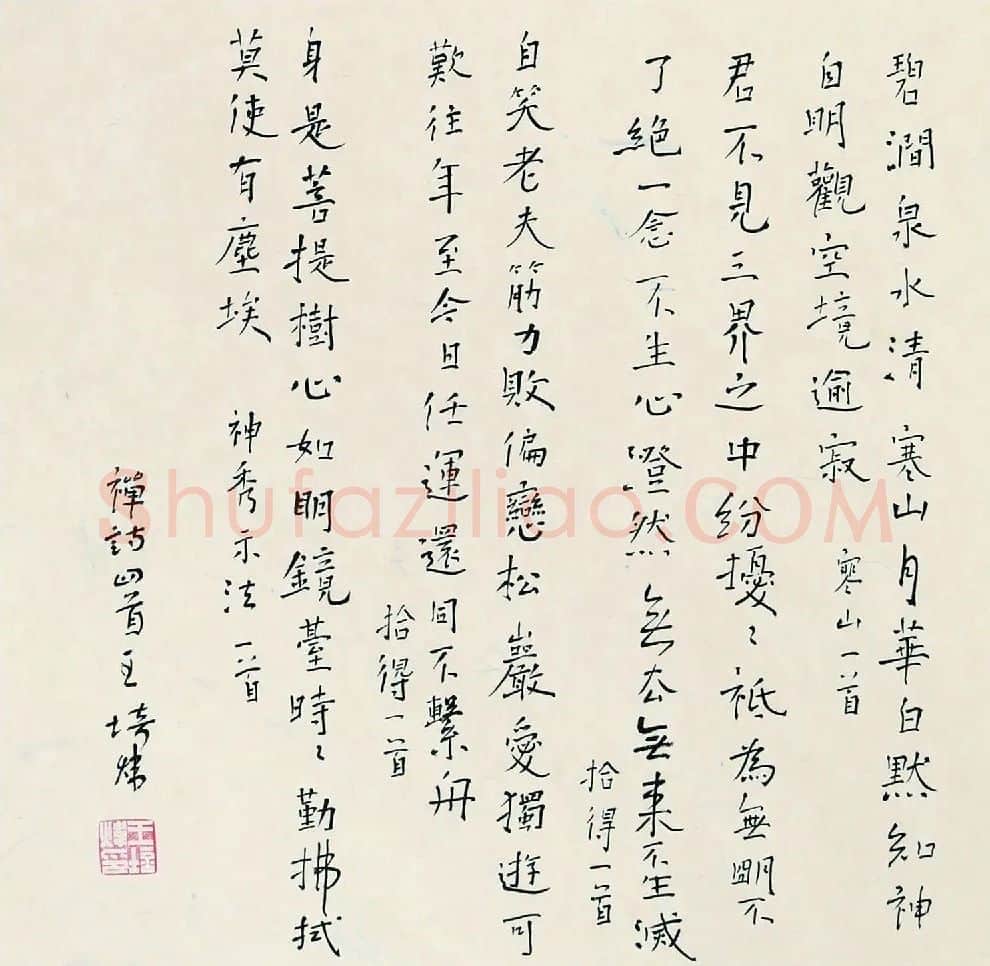 碧澗泉水清寒山月華白默知神
自明觀空境逾寂
寒山一首
君不見三界之中紛擾〻祗為無明不
了絕一念不生心澄然無去無来不生滅
拾得一首
自笑老夫筋力敗偏戀松巖愛獨遊可
歎往年至今日任運還同不繫舟
拾得一首
身是菩提樹心如明鏡臺時〻勤拂拭
莫使有塵埃
神秀示法一首
禪詩四首王培煒
Shufaziliao.COM